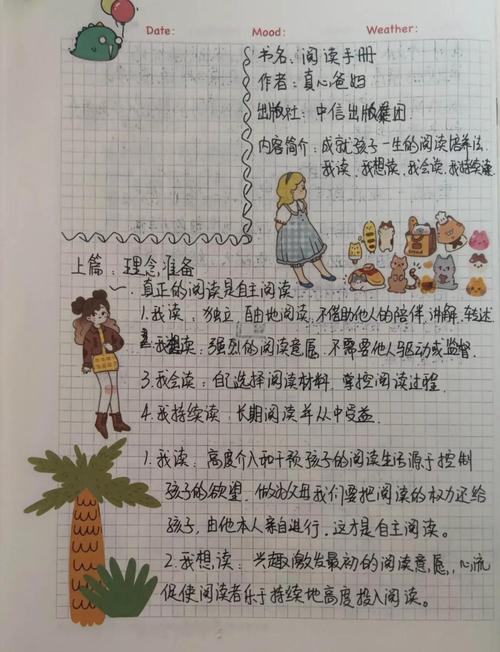 Date: Mood: Weather:
书名：阅读手册
作者：真心爸妈
出版社：中信出版集团
内容简介：成就孩子一生的阅读培养法.
我读、我想读、我会读、我持续读
上篇：理念准备
一.真正的阅读是自主阅读
1.我读：独立、自由地阅读，不借助他人的陪伴、讲解、转述
2.我想读：强烈的阅读意愿，不需要他人驱动或监督.
3.我会读：自己选择阅读材料，掌控阅读过程.
4.我持续读：长期阅读并从中受益.
1.我读：高度介入和干预孩子的阅读生活源于控制
孩子的欲望，做为父母我们要把阅读的权力还给
孩子，由他本人亲自进行，这才是自主阅读。
2.我想读：兴趣激发最初的阅读意愿，心流
促使阅读者乐于持续地高度投入阅读。